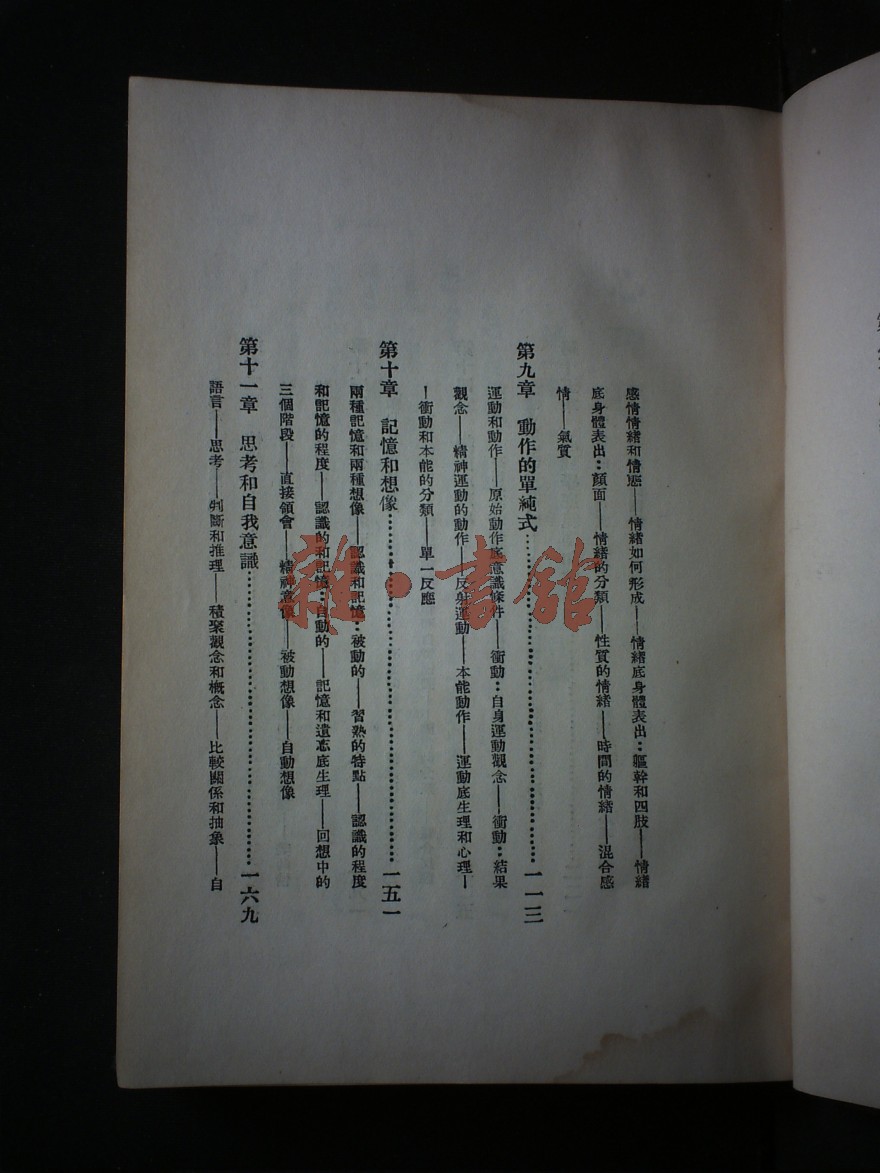 感情情緒和情態——情緒如何形成——情緒底身體表出：軀幹和四肢——情緒
底身體表出：顏面——情緒的分類——性質的情緒——時間的情緒——混合感
情——氣質
第九章　動作的單純式…………………………一一三
運動和動作——原始動作底意識條件——衝動：自身運動觀念——衝動：結果
觀念——精神運動的動作——反射運動——本能動作——運動底生理和心理—
—衝動和本能的分類——單一反應
第十章　記憶和想像…………………………一五一
兩種記憶和兩種想像——認識和記憶：被動的——習熟的特點——認識的程度
和記憶的程度——認識的和記憶：自動的——記憶和遺忘底生理——回想中的
三個階段——直接領會——精神意像——被動想像——自動想像
第十一章　思考和自我意識…………………………一六九
語言——思考——判斷和推理——積聚觀念和概念——比較關係和抽象——自
雜·書館